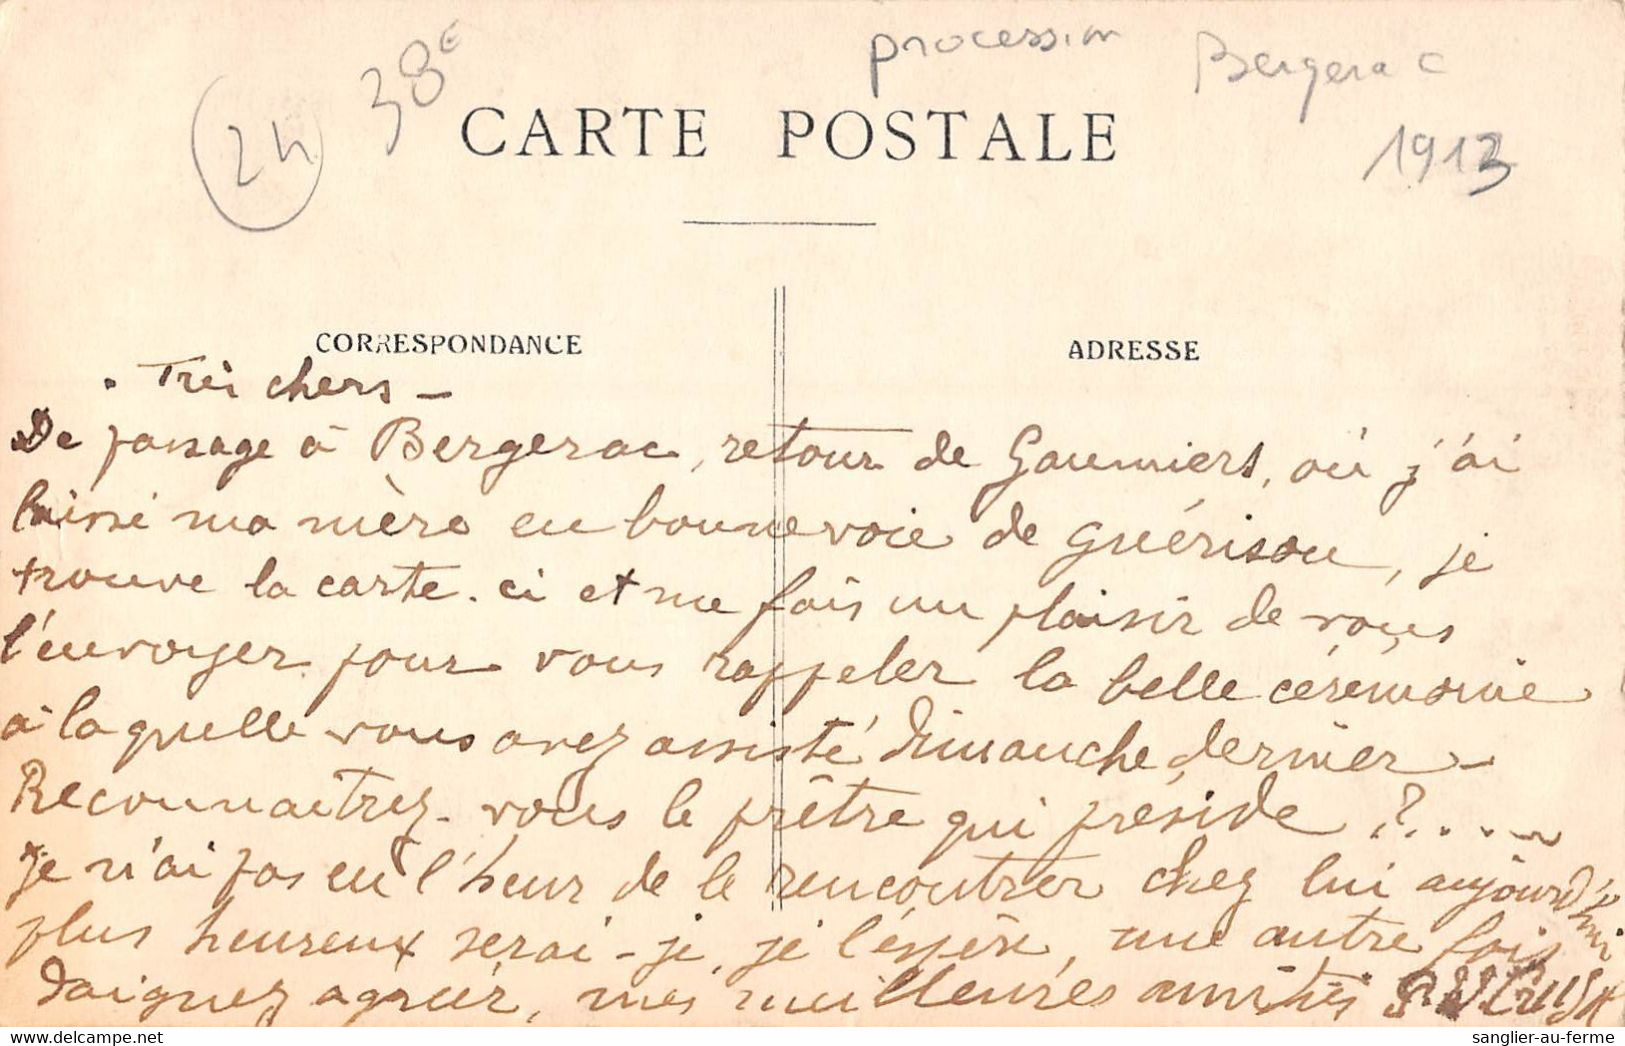 procession
Bergerac
38€
24
CARTE POSTALE
1913
CORRESPONDANCE
ADRESSE
Très chers -
De passage à Bergerac, retour de Gaumiers, où j'ai
laissé ma mère en bonne voie de guérison, je
trouve la carte-ci et me fais un plaisir de vous
l'envoyer pour vous rappeler la belle cérémonie
à laquelle vous avez assisté dimanche dernier -
Reconnaitrez-vous le prêtre qui préside ?....
Je n'ai pas eu l'heur de le rencontrer chez lui aujourd'hui
plus heureux serai-je, je l'espère, une autre fois
Daignez agréer, mes meilleures amitiés
sanglier-au-ferme